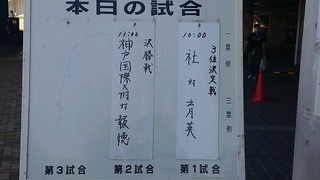 本日の試合
一塁側
三塁側
10:00
3位決定戦
社 対 育英
第1試合
13:00
決勝戦
神戸国際大附 対 報徳
第2試合
第3試合